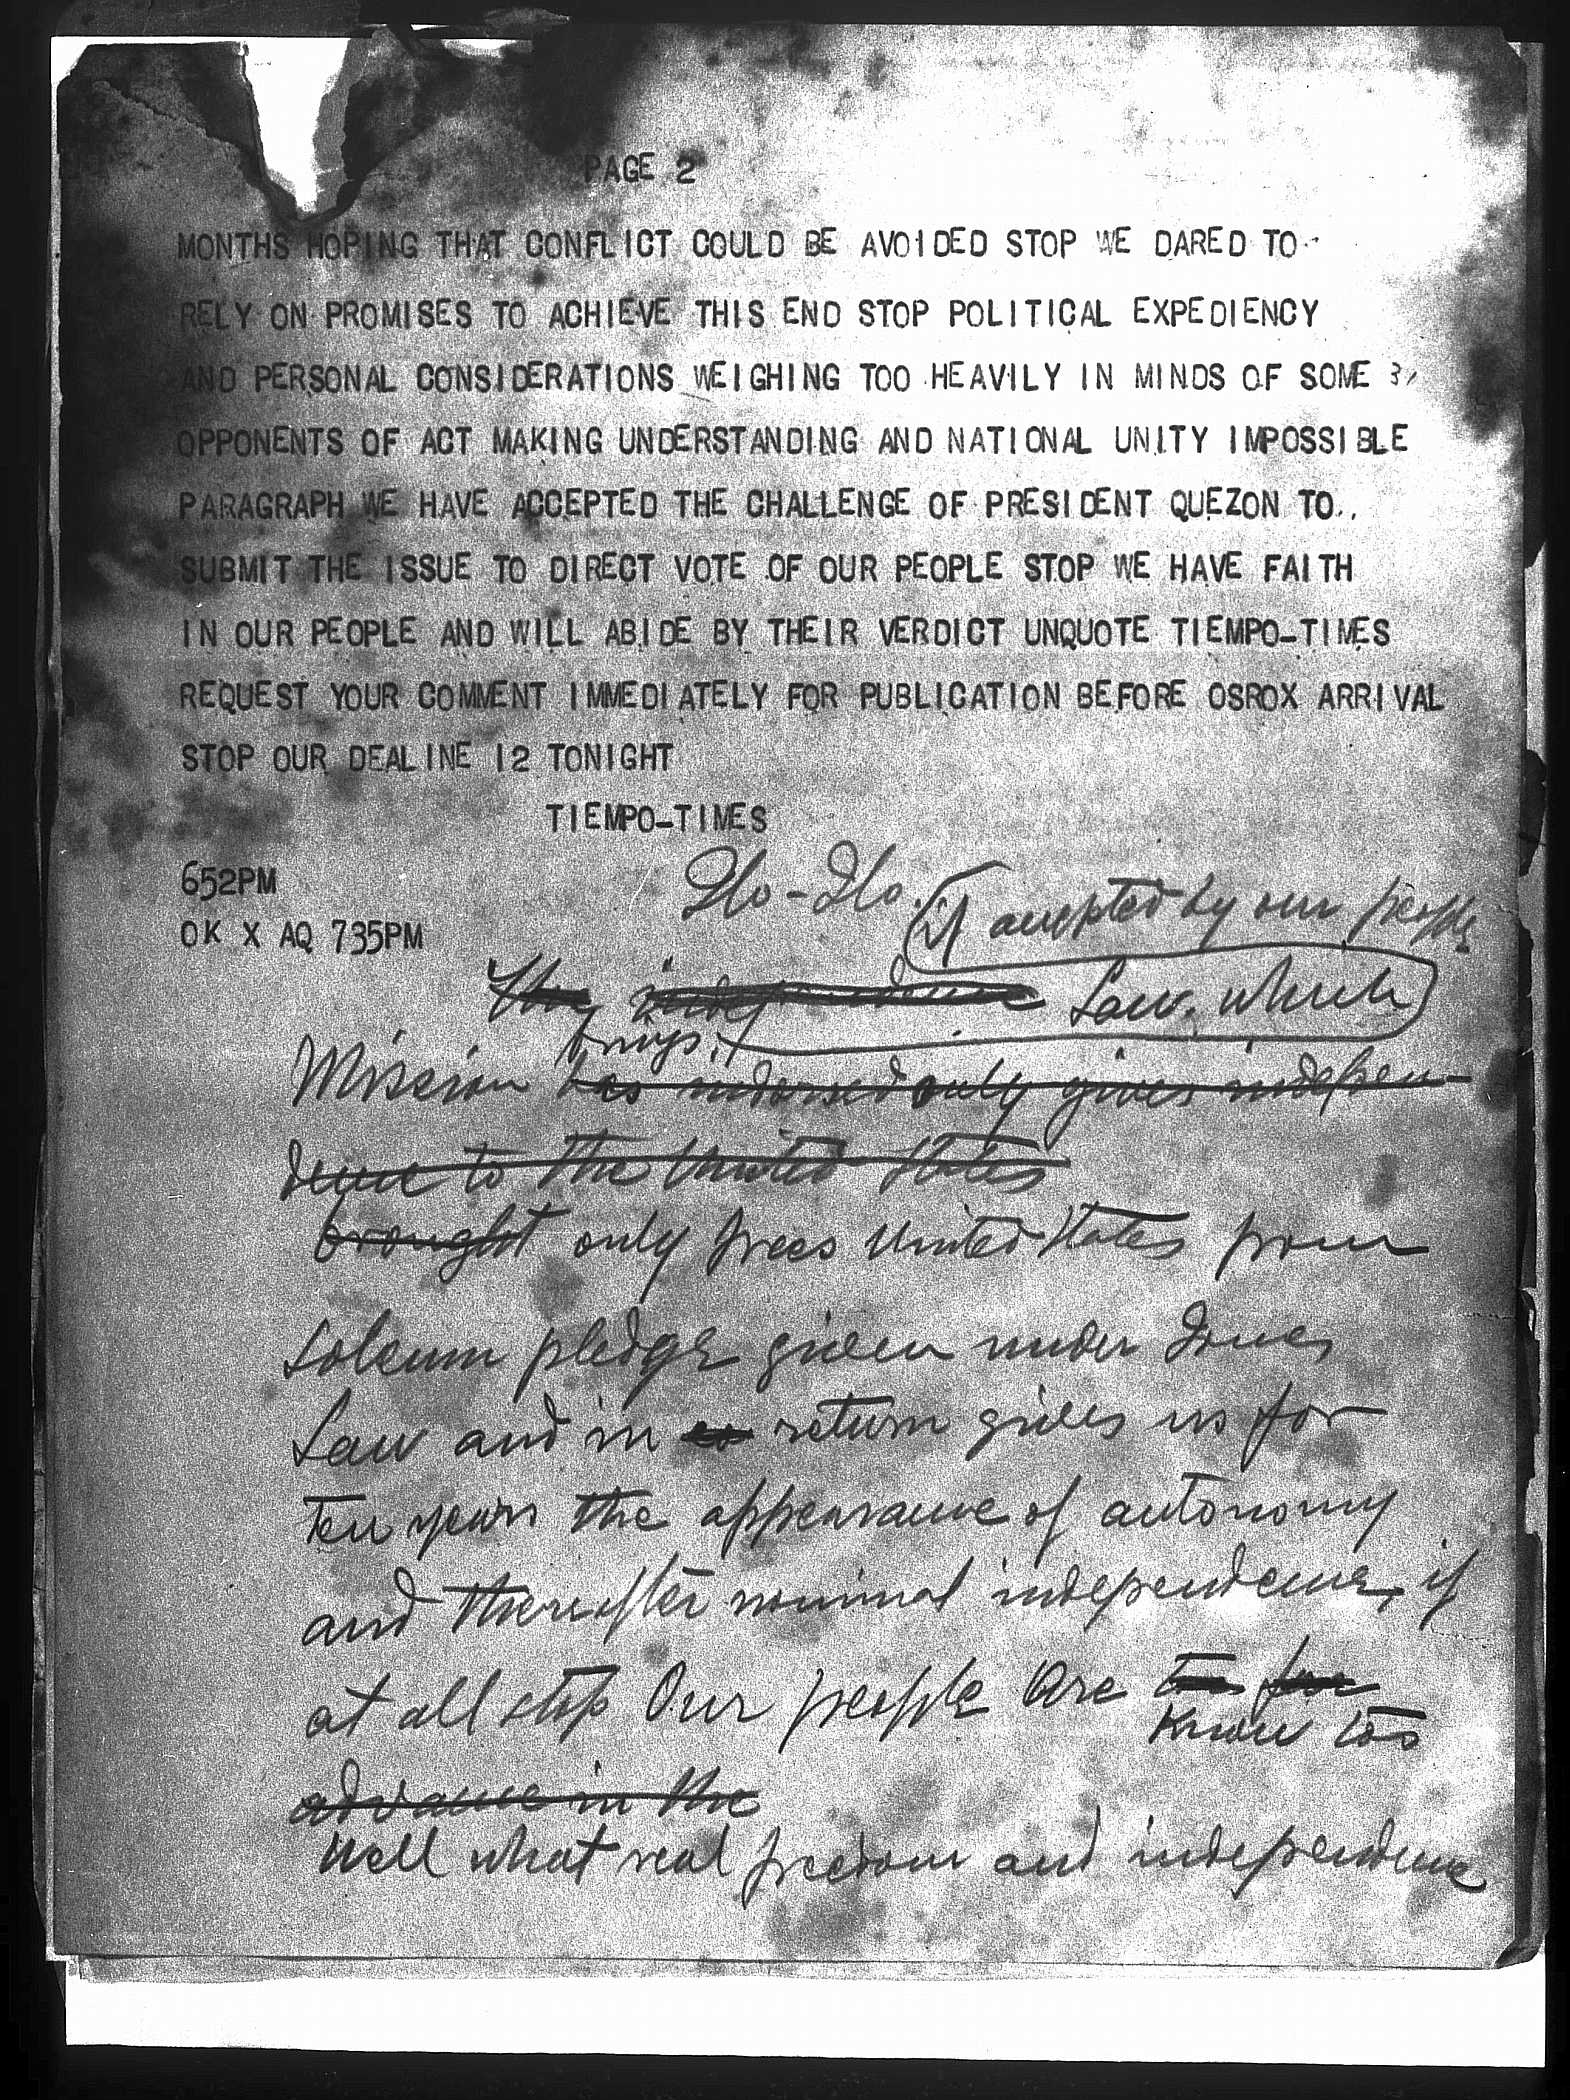 PAGE 2
MONTHS HOPING THAT CONFLICT COULD BE AVOIDED STOP WE DARED TO
RELY ON PROMISES TO ACHIEVE THIS END STOP POLITICAL EXPEDIENCY
AND PERSONAL CONSIDERATIONS WEIGHING TOO HEAVILY IN MINDS OF SOME
OPPONENTS OF ACT MAKING UNDERSTANDING AND NATIONAL UNITY IMPOSSIBLE
PARAGRAPH WE HAVE ACCEPTED THE CHALLENGE OF PRESIDENT QUEZON TO..
SUBMIT THE ISSUE TO DIRECT VOTE OF OUR PEOPLE STOP WE HAVE FAITH
IN OUR PEOPLE AND WILL ABIDE BY THEIR VERDICT UNQUOTE TIEMPO-TIMES
REQUEST YOUR COMMENT IMMEDIATELY FOR PUBLICATION BEFORE OSROX ARRIVAL
STOP OUR DEALINE 12 TONIGHT
TIEMPO-TIMES
652PM
OK X AQ 735PM
Ilo-Ilo.
if accepted by our people
The independence Law. which
brings.
Mission has indorsed only gives indepen-
dence to the United States
brought only frees United States from
solemn pledge given under Jones
Law and in return gives us for
ten years the appearance of autonomy
and thereafter nominal independence, if
at all stop Our people are
know too
advance in the
well what real freedom and independence